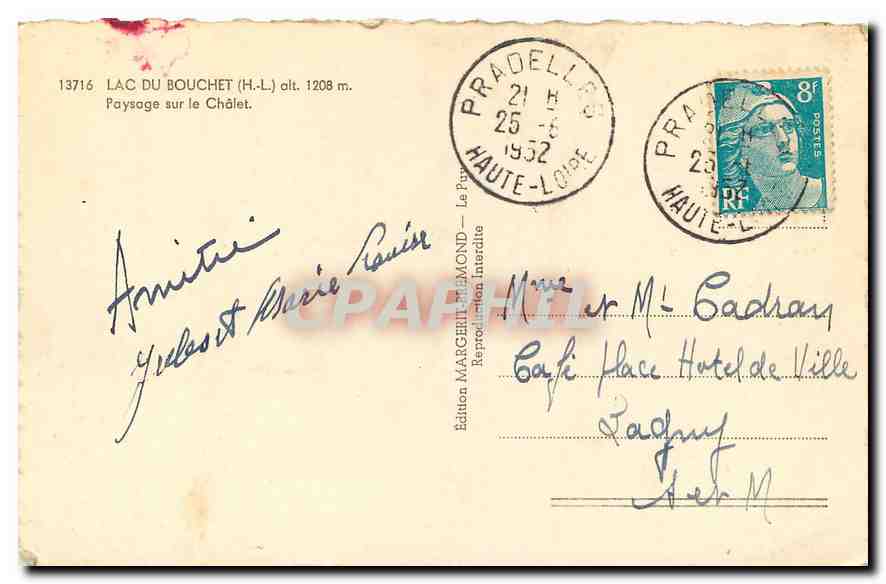 13716 LAC DU BOUCHET (H.-L.) alt. 1208 m.
Paysage sur le Châlet.
PRADELLES
21 H
25 -6
1952
HAUTE-LOIRE
PRADEL
25
1952
HAUTE-L
8F
POSTES
RF
Amitié
Jules et Marie Louise
CPAPHIL
Édition MARGERIT-BREMOND — Le Puy
Reproduction Interdite
Mme et Mr Cadran
Café Place Hotel de Ville
Lagny
S et M